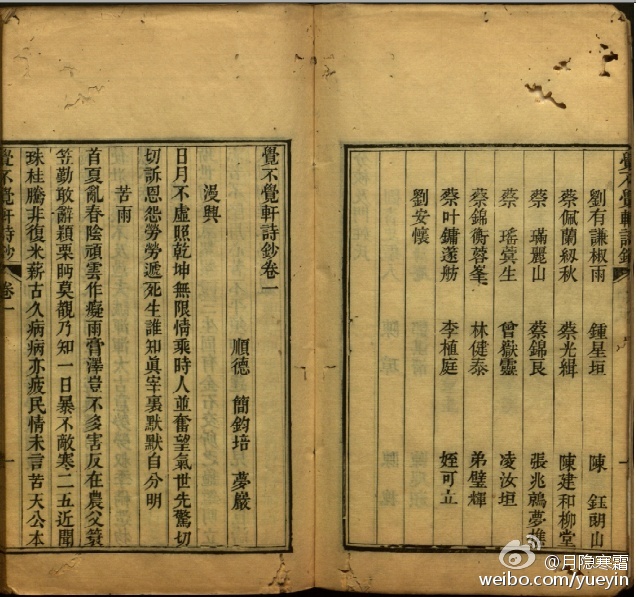 劉有謙椒雨 鍾星垣 陳 鈺朗山
蔡佩蘭紉秋 蔡光緝 陳建和柳堂
蔡 璊麗山 蔡錦良 張兆鶊夢樵
蔡 瑤蓂生 曾嶽靈 凌汝垣
蔡錦衡蓉峯 林健泰 弟璧輝
蔡叶鏞蓬舫 李植庭 姪可立
劉安懷
覺不覺軒詩鈔卷一
順德 簡鈞培 夢巖
漫興
日月不虛照乾坤無限情乘時人並奮望氣世先驚切
切訴恩怨勞勞遞死生誰知眞宰裏默默自分明
苦雨
首夏亂春陰頑雲作癡雨膏澤豈不多害反在農父簑
笠勤敢辭穎栗眄莫覩乃知一日暴不敵寒二五近聞
珠桂騰非復米薪古久病病亦疲民情未言苦天公本
覺不覺軒詩鈔 卷一 一
@月隐寒霜
weibo.com/yueyin